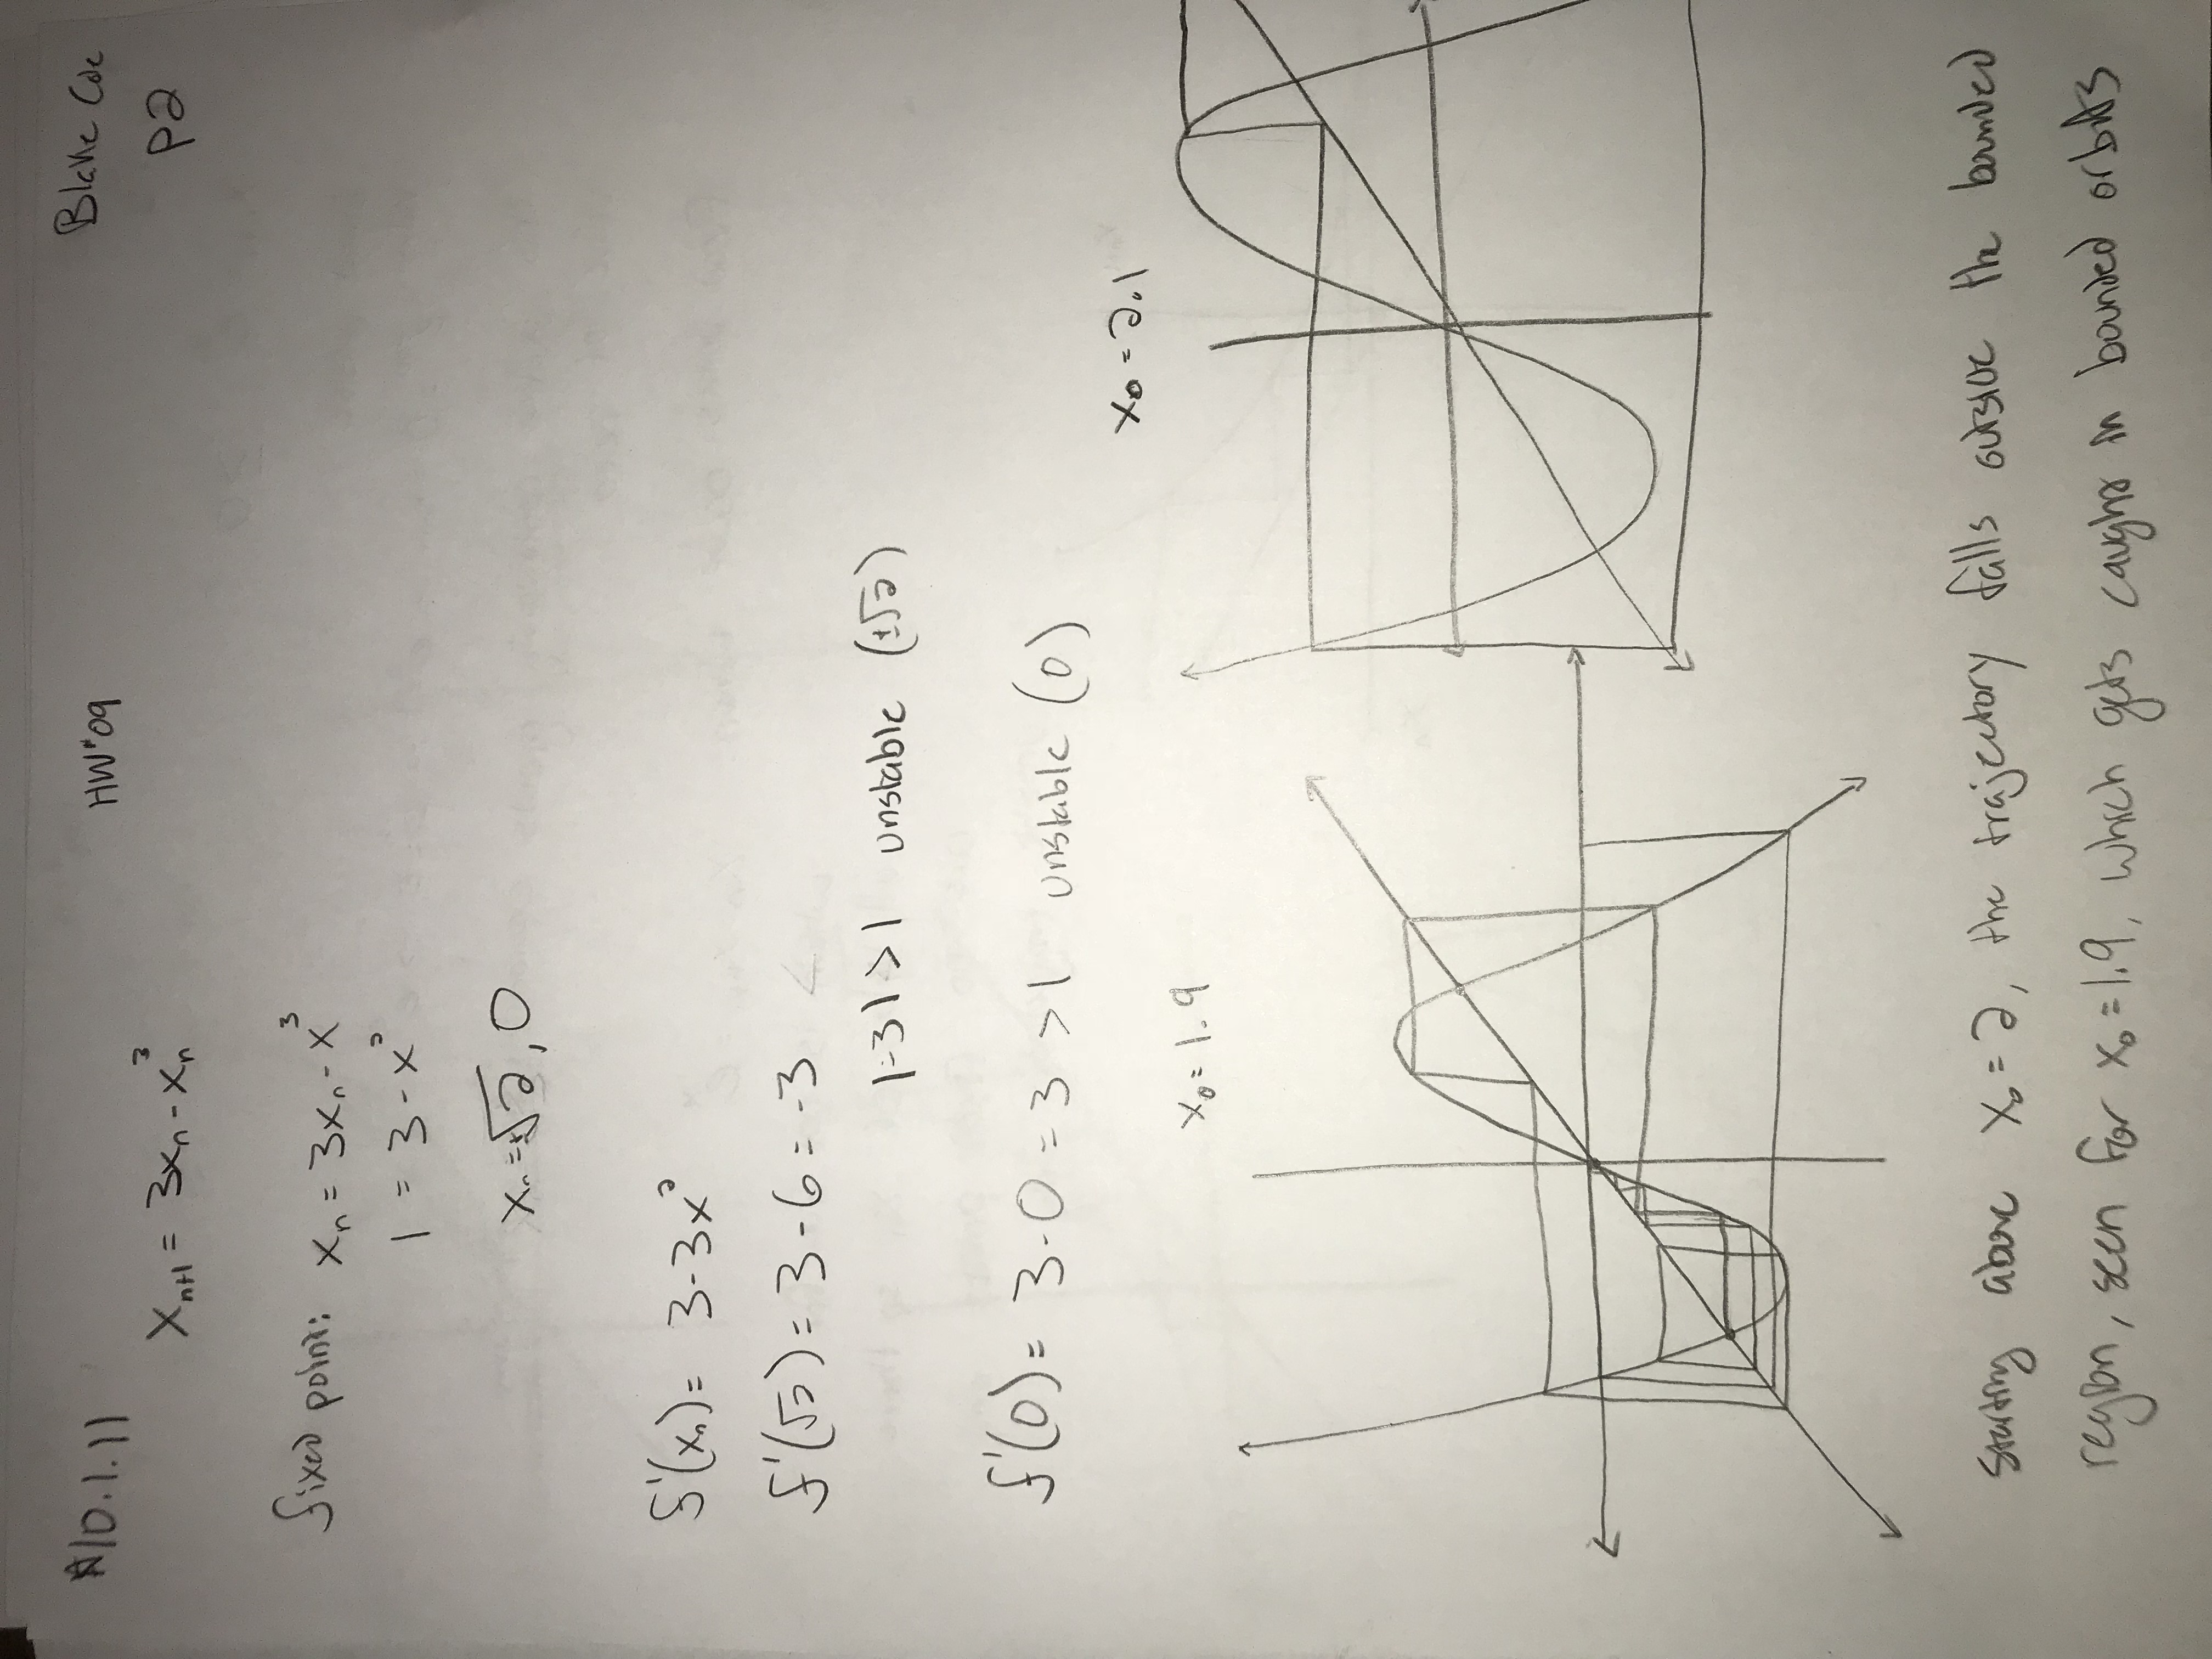 #10.1.11
HW#09
Blake Cole
p2
x_{n+1} = 3x_n - x_n^3
fixed points: x_n = 3x_n - x^3
1 = 3 - x^2
x_n = ±√2, 0
f'(x_n) = 3 - 3x^2
f'(√2) = 3 - 6 = -3 <
|-3| > 1 unstable (±√2)
f'(0) = 3 - 0 = 3 > 1 unstable (0)
x_0 = 2.1
x_0 = 1.9
Starting above x_0 = 2, the trajectory falls outside the bounded
region, seen for x_0 = 1.9, which gets caught in bounded orbits